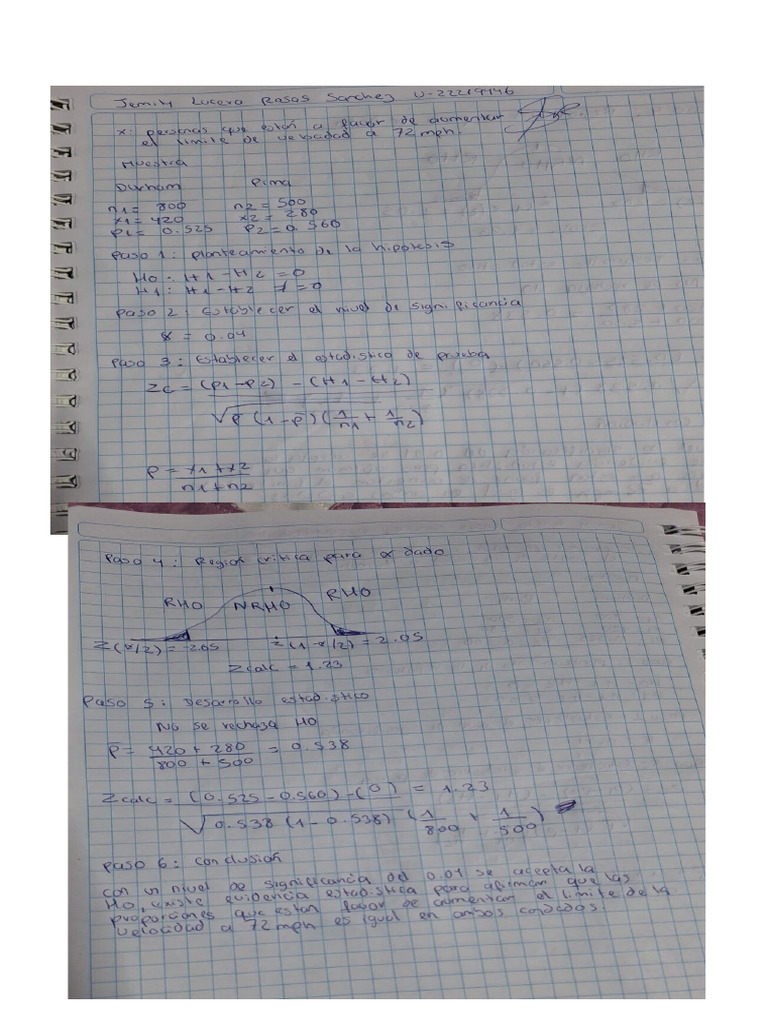 Jemily Lucero Rosas Sanchez U-22219146
x: personas que están a favor de aumentar
el limite de velocidad a 72 mph.
Muestra
Durham Pima
n1= 800 n2= 500
x1= 420 x2= 280
p1= 0.525 p2= 0.560
Paso 1: planteamiento de la hipotesis
H0: H1-H2 =0
H1: H1-H2 ≠0
Paso 2: Establecer el nivel de significancia
α = 0.04
Paso 3: Establecer el estadistico de prueba
Zc = (p1-p2) - (H1-H2)
√p̄ (1-p̄) (1/n1 + 1/n2)
P = x1+x2
n1+n2
Paso 4: Region critica para α dado
RHO NRHO RHO
Z(α/2) = -2.05 Z(1-α/2) = 2.05
Zcalc = 1.23
Paso 5: Desarrollo estadistico
No se rechaza H0
p̄ = 420 + 280 = 0.538
800 + 500
Zcalc = (0.525-0.560)-(0) = 1.23
√0.538 (1-0.538) (1/800 + 1/500)
Paso 6: Conclusión
Con un nivel de significancia del 0.04 se acepta la
H0, existe evidencia estadistica para afirmar que las
proporciones que estan favor de aumentar el limite de la
velocidad a 72 mph es igual en ambos condados.